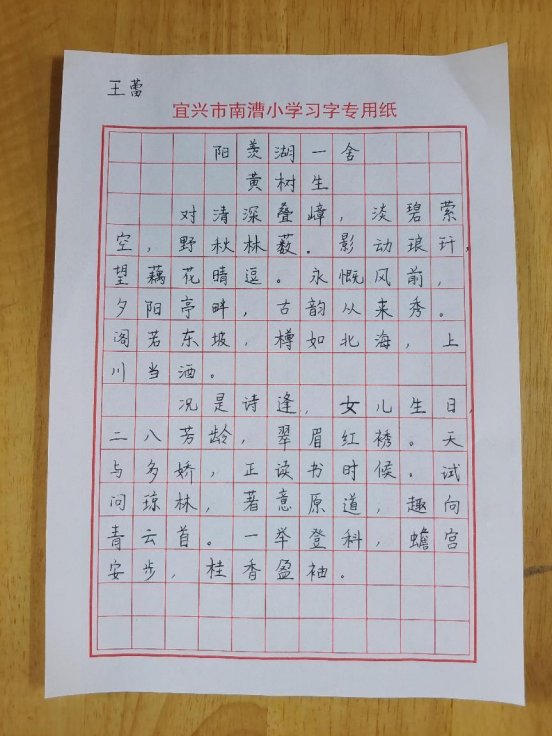 王蕾
宜兴市南漕小学习字专用纸
阳羡湖一舍
黄树生
对清深叠嶂，淡碧萦
空，野秋林薮。影动琅玕，
望藕花晴逗。永慨风前，
夕阳亭畔，古韵从来秀。
阁若东坡，樽如北海，上
川当酒。
况是诗逢，女儿生日，
二八芳龄，翠眉红袖。天
与多娇，正读书时候。试
问琼林，著意原道，趣向
青云首。一举登科，蟾宫
安步，桂香盈袖。